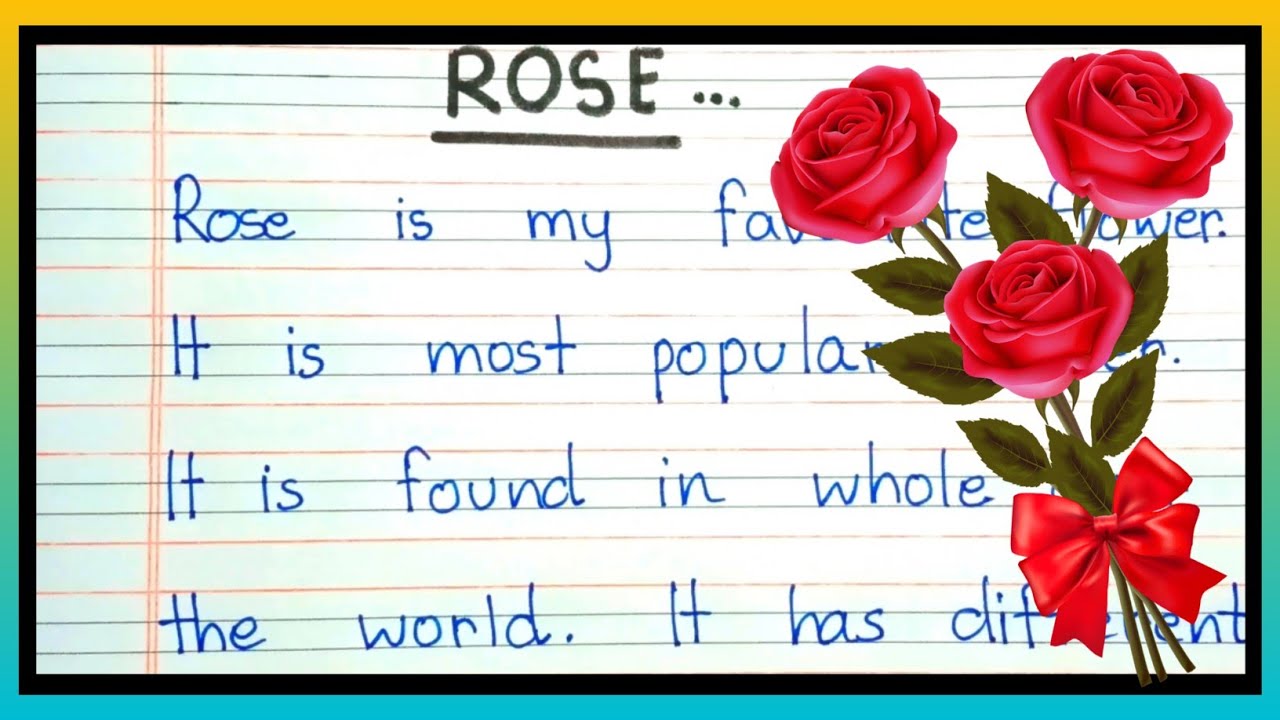 ROSE...
Rose is my flower.
It is most popular
It is found in whole
the world. It has different